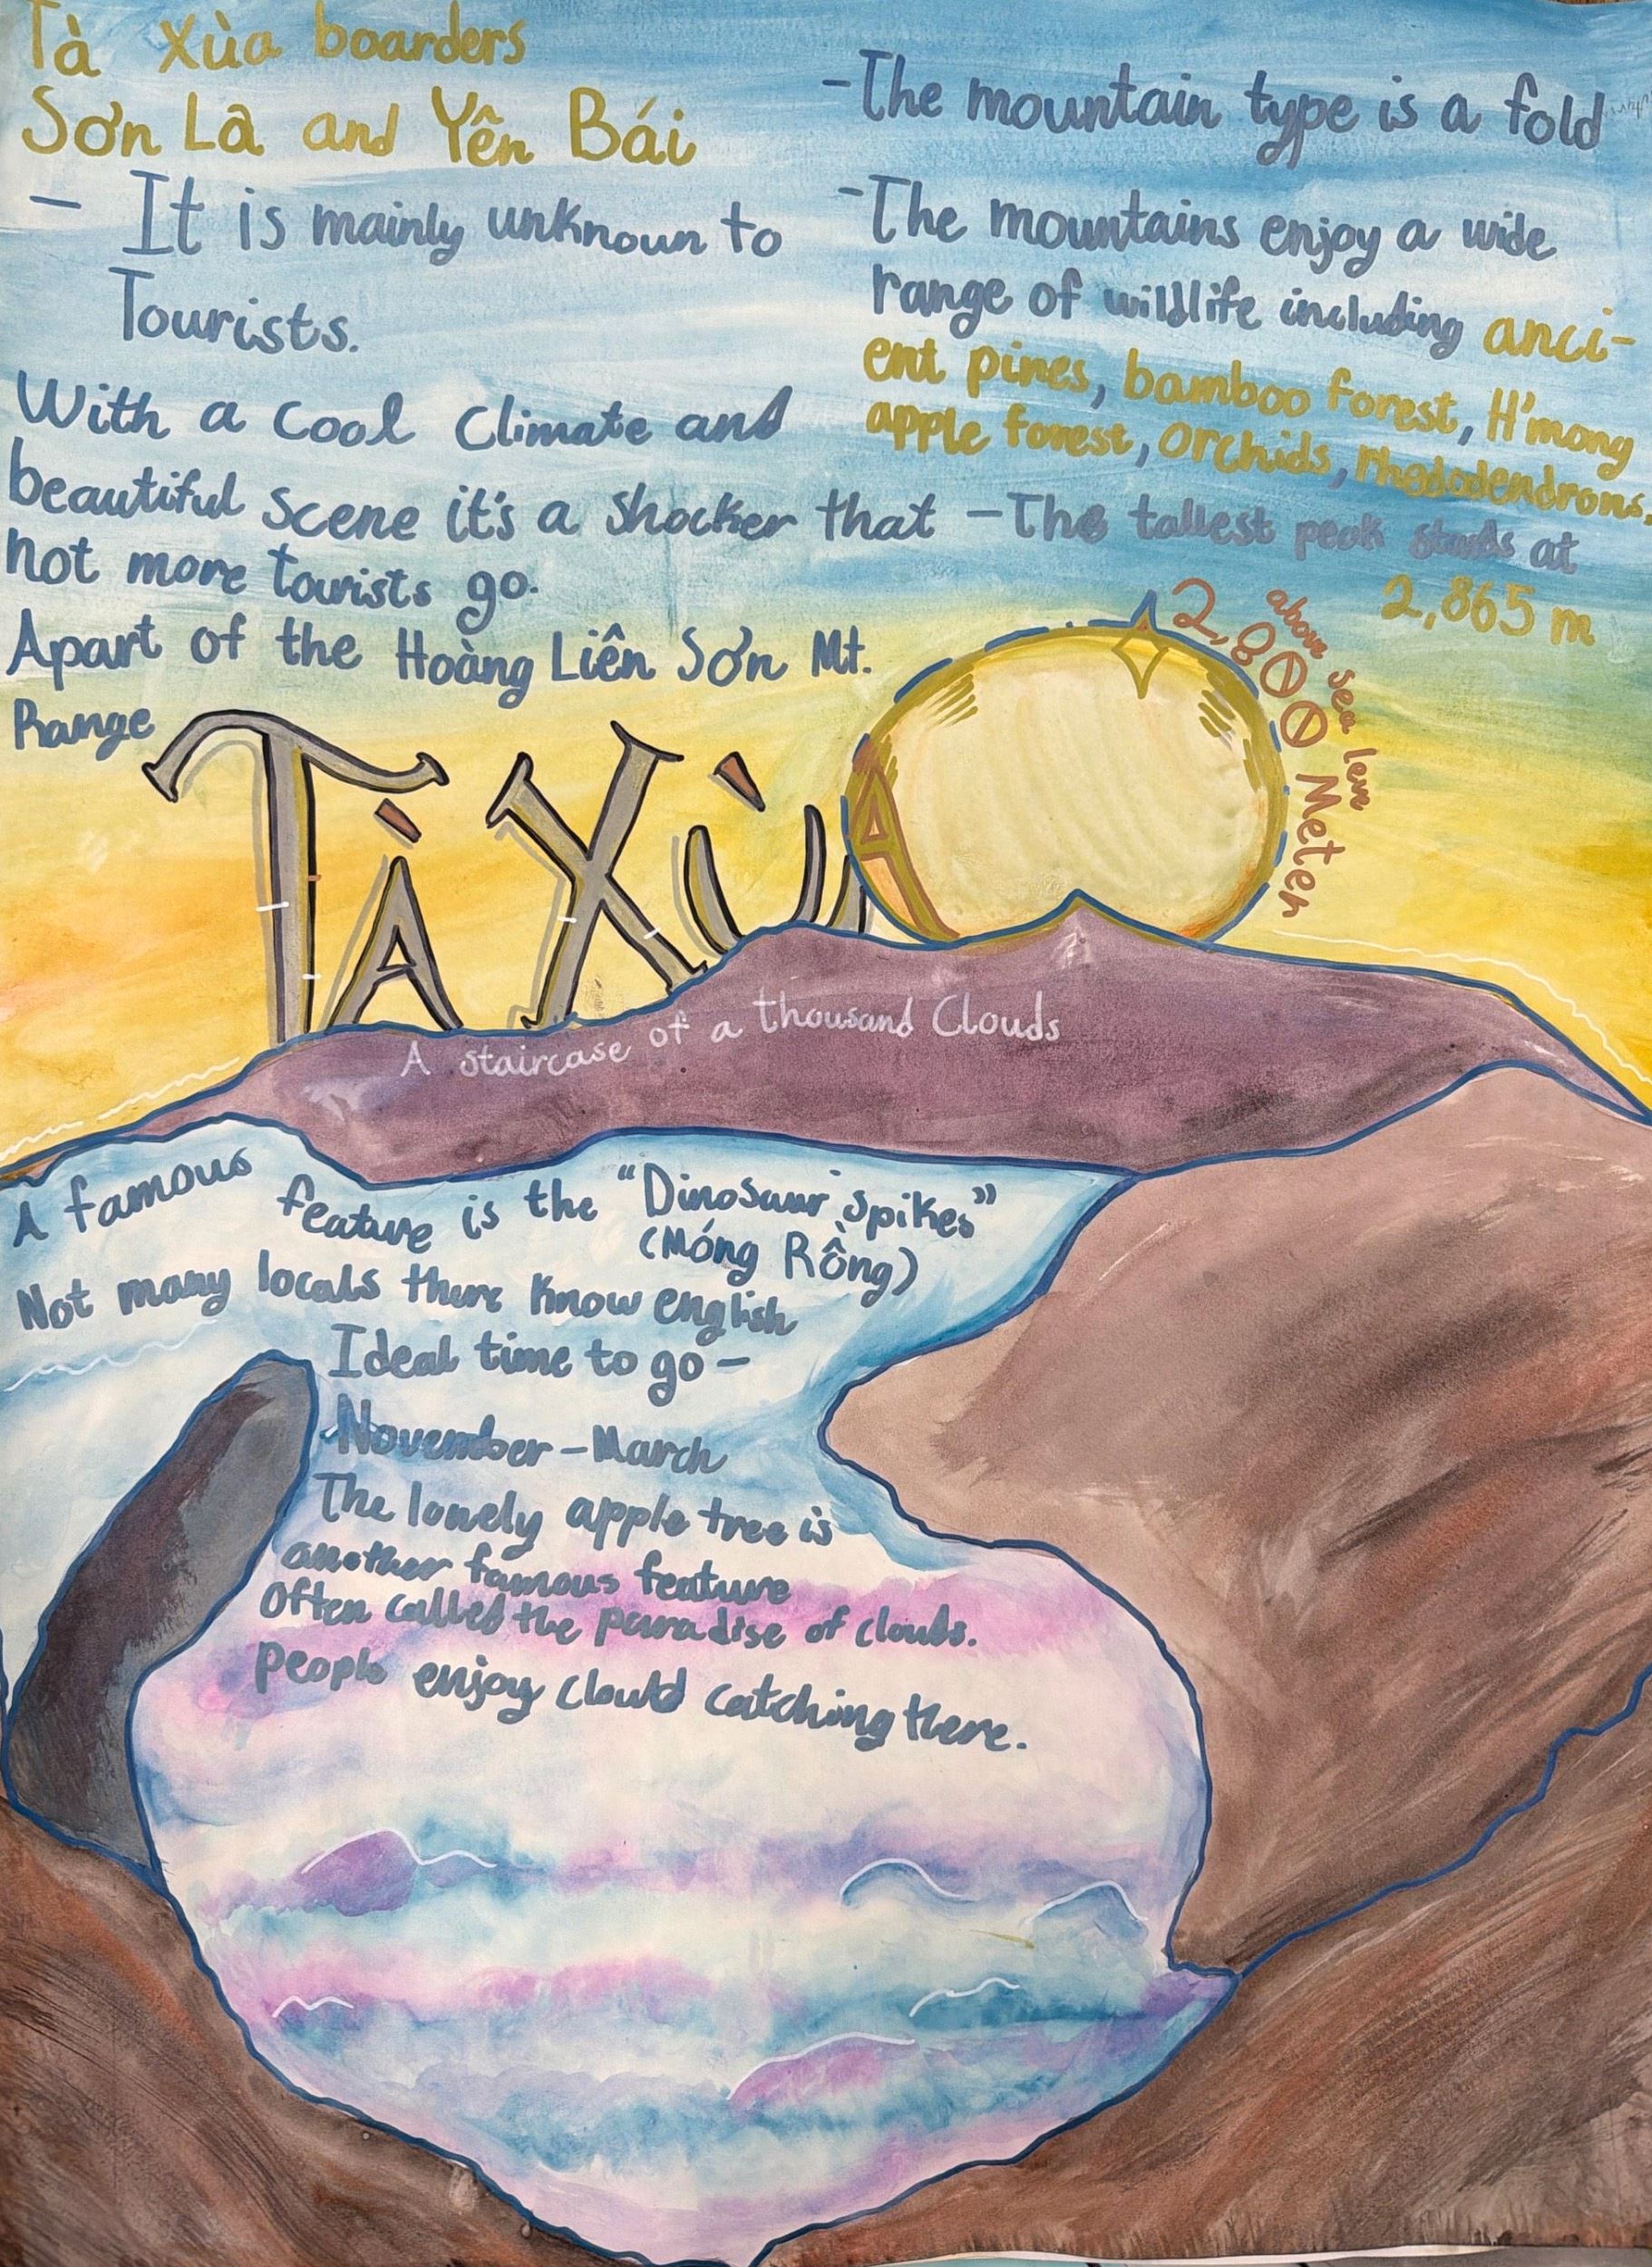 Tà Xùa boarders
Sơn La and Yên Bái
- It is mainly unknown to
Tourists.
With a cool climate and
beautiful scene it's a shocker that
not more tourists go.
Apart of the Hoàng Liên Sơn Mt.
Range
-The mountain type is a fold
-The mountains enjoy a wide
range of wildlife including anci-
ent pines, bamboo forest, H'mong
apple forest, orchids, rhododendrons.
-The tallest peak stands at
2,865 m
2,800 Meter
above sea leve
TÀ XÙA
A staircase of a thousand Clouds
A famous feature is the "Dinosaur spikes"
(Móng Rồng)
Not many locals there know english
Ideal time to go-
November-March
The lonely apple tree is
another famous feature
Often called the paradise of clouds.
People enjoy cloud catching there.